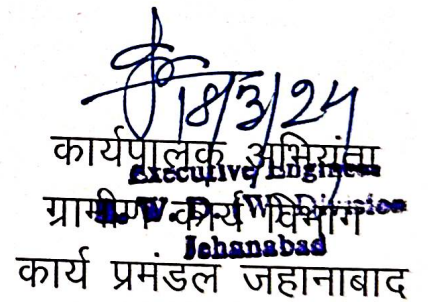 18/3/24
कार्यपालक अभियंता
Executive Engineer
ग्रामीण कार्य विभाग
R. W. D. Division
Jehanabad
कार्य प्रमंडल जहानाबाद